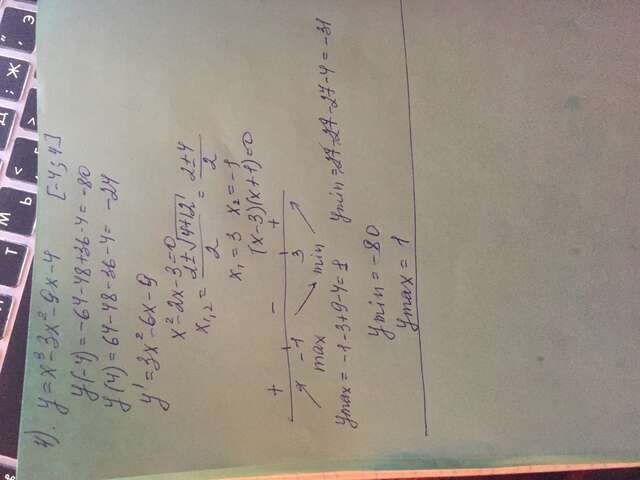 4). y=x³-3x²-9x-4 [-4;4]
y(-4)=-64-48+36-4=-80
y(4)=64-48-36-4= -24
y'=3x²-6x-9
x²-2x-3=0
x₁,₂ = (2±√(4+12))/2 = (2±4)/2
x₁=3 x₂=-1
(x-3)(x+1)=0
+ - +
-1 3
max min
ymax= -1-3+9-4=1 ymin=27-27-27-4=-31
ymin=-80
ymax=1
Д Ж Э
Ь